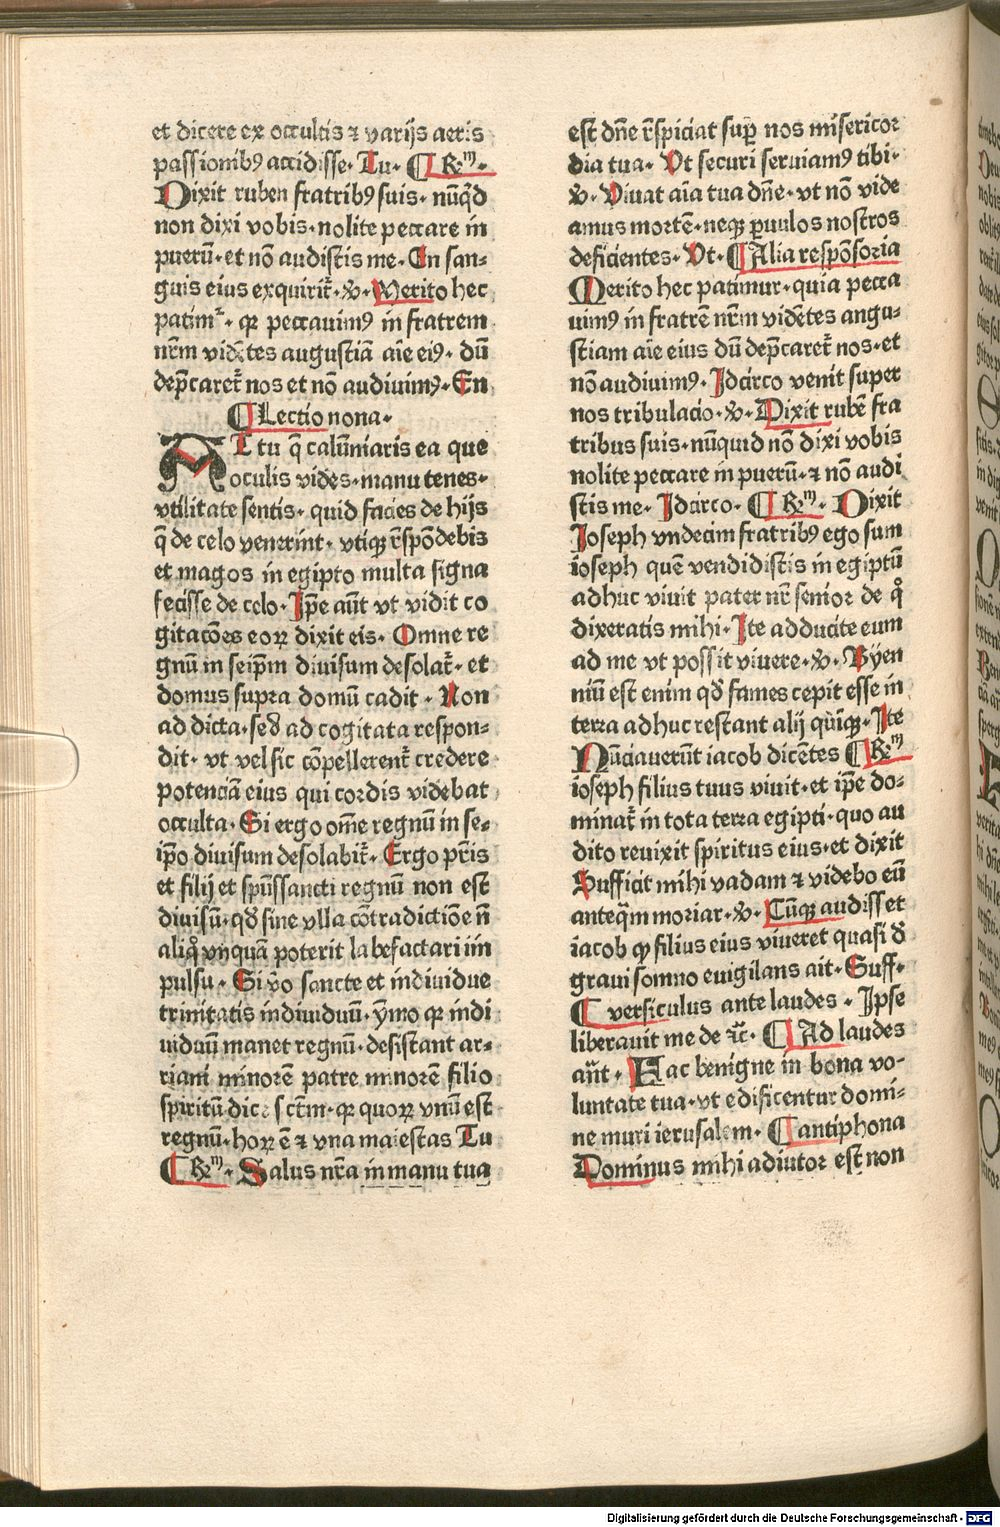 et dicere ex occultis ⁊ varijs aeris
passionibꝰ accidisse· Tu· ¶ Rᵐ·
Dixit ruben fratribꝰ suis· nūqͥd
non dixi vobis· nolite peccare in
puerū· et nō audistis me· En san⸗
guis eius exquirit̄· ⁊c̄· Merito hec
patimr̄· qꝛ peccauimꝰ in fratrem
nr̄m vidētes augustiā aīe eiꝰ· dū
dep̄caret̄ nos et nō audiuimꝰ· En
¶ Lectio nona·
AT tu q̄ calūmiaris ea que
oculis vides· manu tenes·
vtilitate sentis· quid facies de hijs
q̄ de celo venerint· vtiqꝫ r̄spōdebis
et magos in egipto multa signa
fecisse de celo· Ip̄e aūt vt vidit co
gitacōes eoꝝ dixit eis· Omne re
gnū in seip̄m diuisum desolat̄· et
domus supra domū cadit· Non
ad dicta· sed ad cogitata respon⸗
dit· vt vel sic cōpellerent̄ credere
potenciā eius qui cordis videbat
occulta· Si ergo om̄e regnū in se⸗
ip̄o diuisum desolabit̄· Ergo pr̄is
et filij et spūssancti regnū non est
diuisū· qd̄ sine vlla cōtradictiōe n̄
aliqͦ vnquā poterit labefactari im
pulsu· Si v̄o sancte et indiuidue
trinitatis indiuiduū· ymo qꝛ indi
uiduū manet regnū· desistant ar⸗
riani minorē patre minorē filio
spiritū dice s ctm̄· qꝛ quoꝝ vnū est
regnū· hoꝝ ē ⁊ vna maiestas Tu
¶ Rᵐ· Salus nr̄a in manu tua
est dn̄e r̄spiciat sup̄ nos misericor
dia tua· Vt securi seruiamꝰ tibi·
℣· Viuat aīa tua dn̄e· vt nō vide
amus mortē· neqꝫ ꝑuulos nostros
deficientes· Vt· ¶ Alia respōsoria
Merito hec patimur· quia pecca
uimꝰ in fratrē nr̄m vidētes angu⸗
stiam aīe eius dū dep̄caret̄ nos· et
nō audiuimꝰ· Idcirco venit super
nos tribulacio· ℣· Dixit rubē fra
tribus suis· nūquid nō dixi vobis
nolite peccare in puerū· ⁊ nō audi
stis me· Idcirco· ¶ Rᵐ· Dixit
Ioseph vndecim fratribꝰ ego sum
ioseph quē vendidistis in egiptū
adhuc viuit pater nr̄ senior de qͦ
dixeratis mihi· Ite adducite eum
ad me vt possit viuere· ℣· Byen
niū est enim qd̄ fames cepit esse in
terra adhuc restant alij quīqꝫ· Ite
Nūciauerūt iacob dicētes ¶ Rᵐ
ioseph filius tuus viuit· et ip̄e do⸗
minat̄ in tota terra egipti· quo au
dito reuixit spiritus eius· et dixit
Sufficit mihi vadam ⁊ videbo eū
anteqͣm moriar· ℣· Cūqꝫ audisset
iacob ꝙ filius eius viueret quasi d̄
graui somno euigilans ait· Suff·
¶ versiculus ante laudes· Ipse
liberauit me de ⁊c̄· ¶ Ad laudes
an̄t· Hac benigne in bona vo⸗
luntate tua· vt edificentur domi⸗
ne muri ierusalem· ¶ antiphona
Dominus mihi adiutor est non
Digitalisierung gefördert durch die Deutsche Forschungsgemeinschaft - DFG